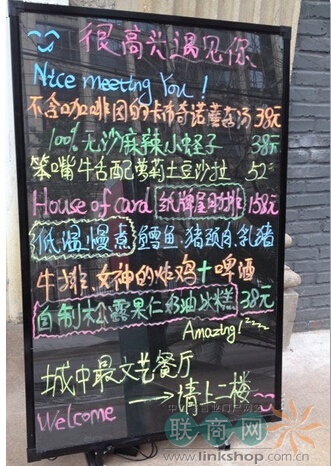 很高兴遇见你
Nice meeting You!
不含咖啡因的卡布奇诺蘑菇汤 39元
100%无沙麻辣小蛏子 38元
笨嘴牛舌配萝莉土豆沙拉 52元
House of card 纸牌屋肋排 158元
低温慢煮鳕鱼.猪颈肉.乳猪
牛排.女神的炸鸡+啤酒
自制松露果仁奶油冰糕 38元
Amazing!
城中最文艺餐厅
Welcome → 请上二楼~
联商网
www.linkshop.com.cn